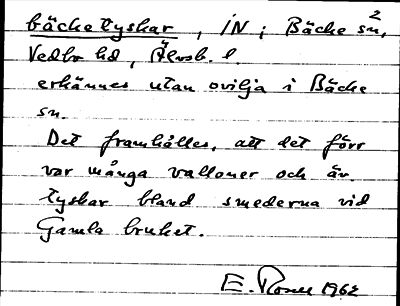 bäcketyskar, IN i Bäcke sn, 2
Vedbo hd, Älvsb. l.
erkännes utan ovilja i Bäcke
sn.
Det framhålles, att det förr
var många valloner och äv.
tyskar bland smederna vid
Gamla bruket.
E. 1962